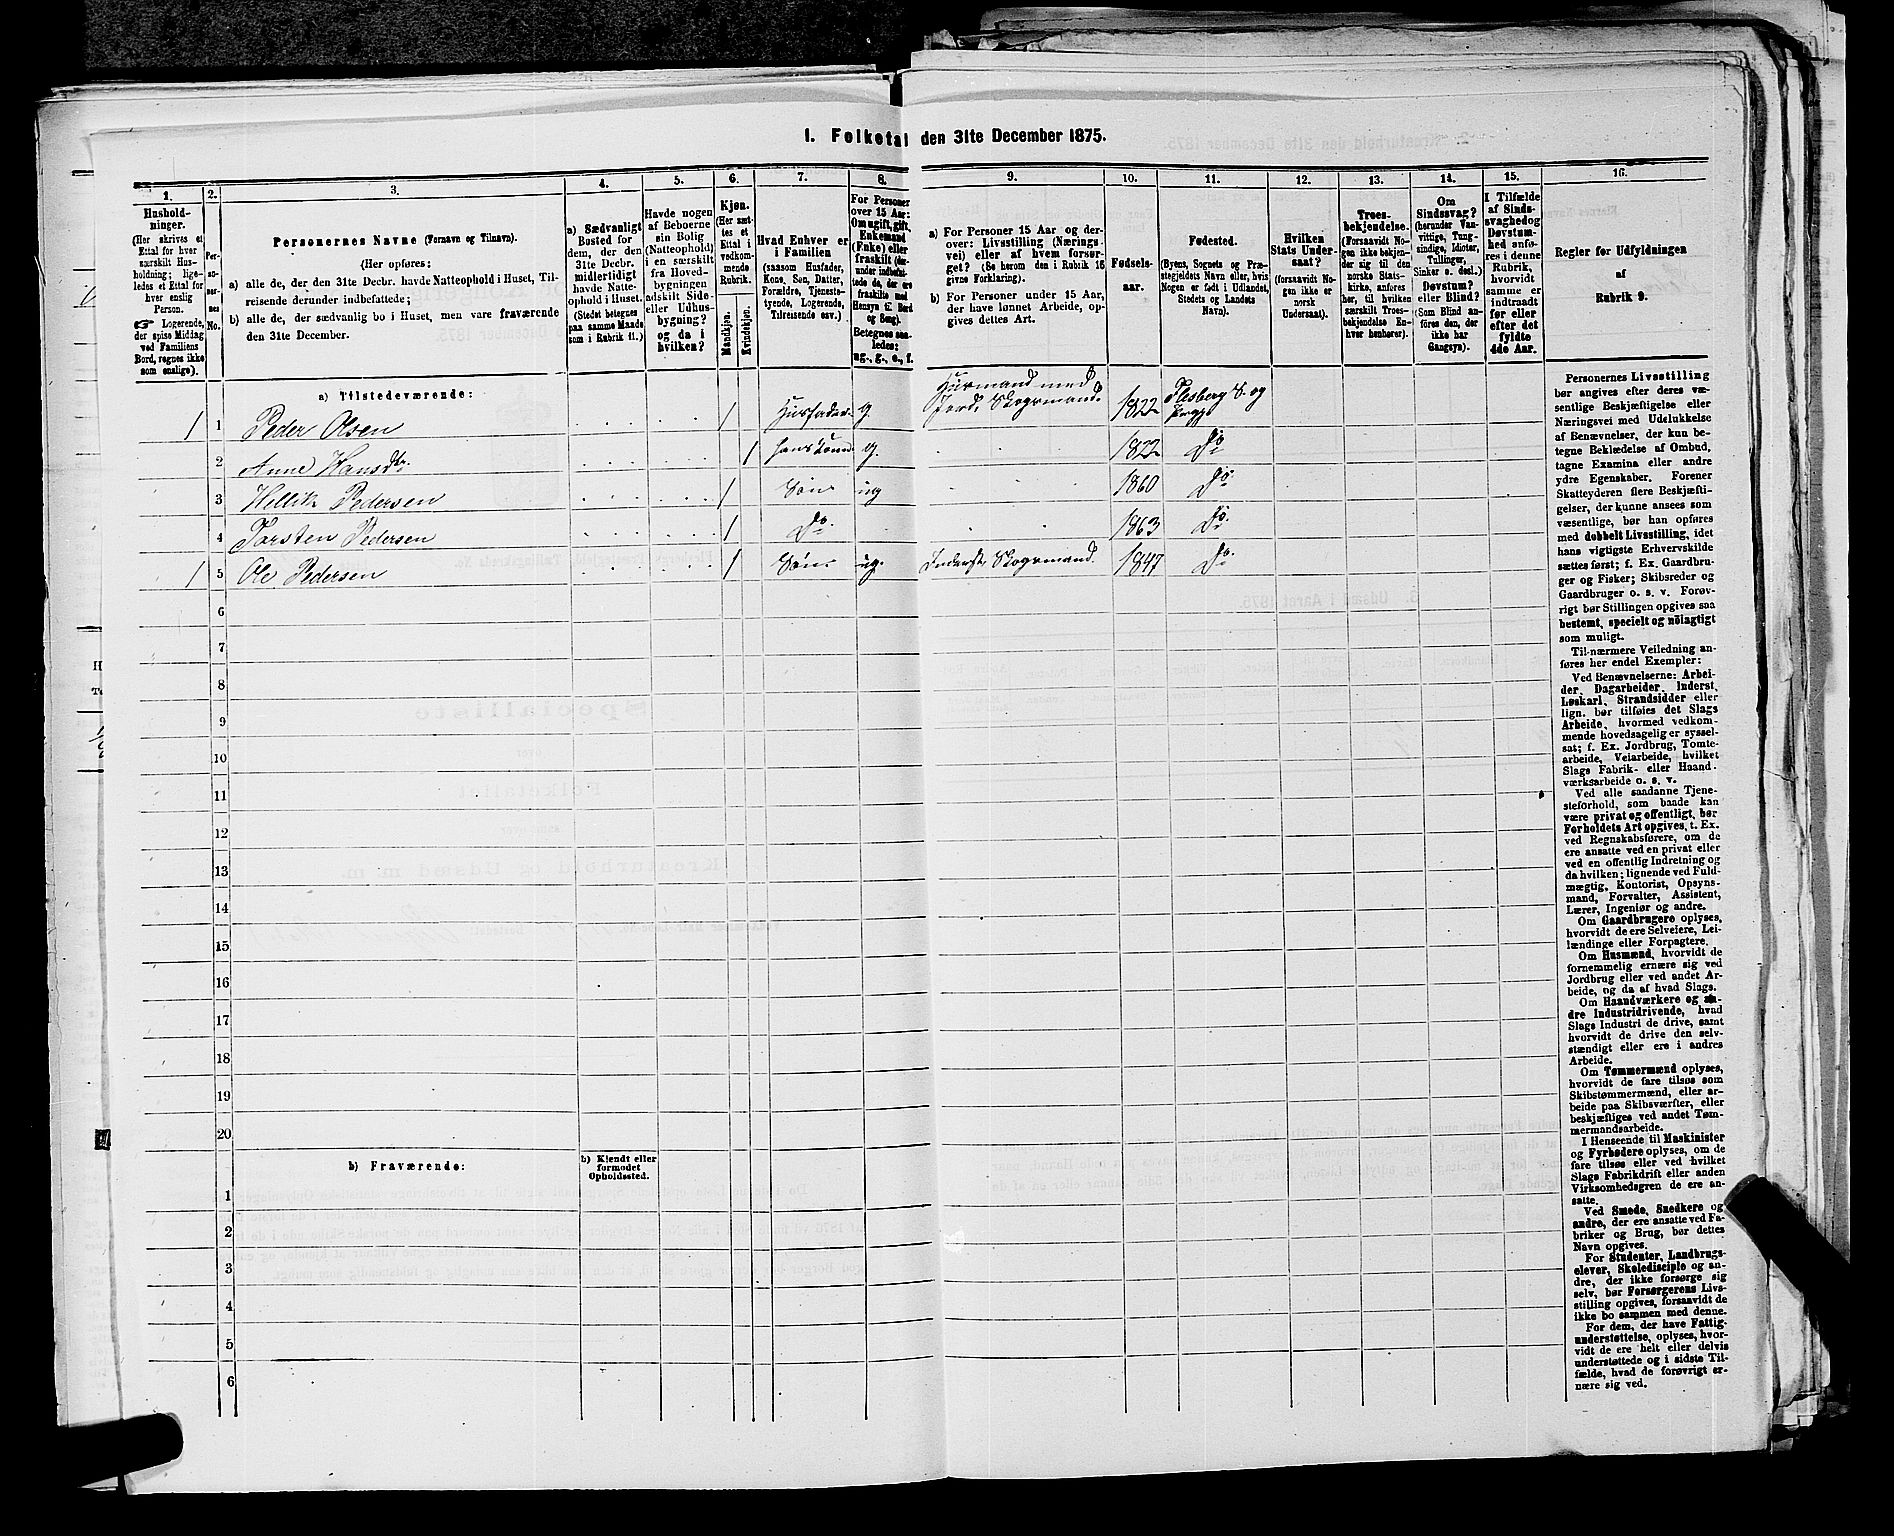 1. Folketal den 31te December 1875.
1.
Hushold-
ninger.
(Her skrives et
Ettal for hver
særskilt Hus-
holdning; lige-
ledes et Ettal for
hver enslig
Person.
☞ Logerende,
der spise Middag
ved Familiens
Bord, regnes ikke
som enslige).
2.
Per-
so-
ner-
nes
No.
3.
Personernes Navne (Fornavn og Tilnavn).
(Her opføres:
a) alle de, der den 31te Decbr. havde Natteophold i Huset, Til-
reisende derunder indbefattede;
b) alle de, der sædvanlig bo i Huset, men vare fraværende
den 31te December.
4.
a) Sædvanligt
Bosted for
dem, der den
31te Decbr.
midlertidigt
havde Natte-
ophold i Huset.
(Stedet betegnes
paa samme Maade
som i Rubrik 11.)
5.
Havde nogen
af Beboerne
sin Bolig
(Natteophold)
i en særskilt
fra Hoved-
bygningen
adskilt Side-
eller Udhus-
bygning?
og da i
hvilken?
6.
Kjøn.
(Her sæt-
tes et
Ettal i
vedkom-
mende
Rubrik.
Mandkjøn.
Kvindekjøn.
7.
Hvad Enhver er
i Familien
(saasom Husfader,
Kone, Søn, Datter,
Forældre, Tjeneste-
tyende, Logerende,
Tilreisende osv.).
8.
For Personer
over 15 Aar:
Om ugift, gift,
Enkemand
(Enke) eller
fraskilt
Betegnes saa-
ledes:
ug., g., e., f.
9.
a) For Personer 15 Aar og der-
over: Livsstilling (Nærings-
vei) eller af hvem forsør-
get? (Se herom den i Rubrik 16
givne Forklaring).
b) For Personer under 15 Aar,
der have lønnet Arbeide, op-
gives dettes Art.
10.
Fødsels-
aar.
11.
Fødested.
(Byens, Sognets og Præ-
stegjeldets Navn eller, hvis
Nogen er født i Udlandet,
Stedets og Landets
Navn).
12.
Hvilken
Stats Under-
saat?
(forsaavidt No-
gen ikke er
norsk
Undersaat).
13.
Troes-
bekjendelse.
(Forsaavidt No-
gen ikke bekjen-
der sig til den
norske Stats-
kirke, anføres
her, til hvilken
særskilt Troes-
bekjendelse En-
hver henhører).
14.
Om
Sindssvag?
(herunder Van-
vittige, Tung-
sindige, Idioter,
Tullinger,
Sinker o. desl.)
Døvstum?
eller Blind?
(Som Blind an-
føres den, der
ikke har
Gangsyn).
15.
I Tilfælde
af Sinds-
svaghed og
Døvstum-
hed anfø-
res i denne
Rubrik,
hvorvidt
samme er
indtraadt
før eller
efter det
fyldte
4de Aar.
16.
Regler for Udfyldningen
af
Rubrik 9.
a) Tilstedeværende:
1 1 Peder Olsen 1 Husfader g. Husmand med Jord, Skogsmand. 1822 Flesberg S. og Prgj
2 Anne Hansdtr. 1 hans Kone g. 1822 Do
3 Hellik Pedersen 1 Søn ug 1860 Do.
4 Torsten Pedersen 1 Do. 1863 Do.
1 5 Ole Pedersen 1 Søn ug. Inderst Skogsmand. 1847 Do.
6
7
8
9
10
11
12
13
14
15
16
17
18
19
20
b) Fraværende:
b) Kjendt eller
formodet
Opholdssted.
1
2
3
4
5
6
Personernes Livsstilling
bør angives efter deres væ-
sentlige Beskjæftigelse eller
Næringsvei med Udelukkelse
af Benævnelser, der kun be-
tegne Beklædelse af Ombud,
tagne Examina eller andre
ydre Egenskaber. Forener
Skatteyderen flere Beskjæfti-
gelser, der kunne ansees som
væsentlige, bør han opføres
med dobbelt Livsstilling, idet
hans vigtigste Erhvervskilde
sættes først; f. Ex. Gaardbru-
ger og Fisker; Skibsreder og
Gaardbruger o. s. v. Forøv-
rigt bør Stillingen opgives saa
bestemt, specielt og nøiagtigt
som muligt.
Til nærmere Veiledning an-
føres her endel Exempler:
Ved Benævnelserne: Arbei-
der, Dagarbeider, Inderst,
Løskarl, Strandsidder eller
lign. bør tilføies det Slags
Arbeide, hvormed vedkom-
mende hovedsagelig er syssel-
sat; f. Ex. Jordbrug, Tomte-
arbeide, Veiarbeide, hvilket
Slags Fabrik- eller Haand-
værksarbeide o. s. v.
Ved alle saadanne Tjene-
steforhold, som baade kan
være privat og offentligt, bør
Forholdets Art opgives, t. Ex.
ved Regnskabsførere, om de
ere ansatte ved en privat eller
ved en offentlig Indretning og
da hvilken; lignende ved Fuld-
mægtig, Kontorist, Opsyns-
mand, Forvalter, Assistent,
Lærer, Ingeniør og andre.
Om Gaardbrugere oplyses,
hvorvidt de ere Selveiere, Lei-
lændinge eller Forpagtere.
Om Husmænd, hvorvidt de
fornemmelig ernære sig ved
Jordbrug eller ved andet Ar-
beide, og da af hvad Slags.
Om Haandværkere og an-
dre Industridrivende, hvad
Slags Industri de drive, samt
hvorvidt de drive den selv-
stændigt eller ere i andres
Arbeide.
Om Tømmermænd oplyses,
hvorvidt de fare tilsøs som
Skibstømmermænd, eller ar-
beide paa Skibsværfter, eller
beskjæftiges ved andet Tøm-
mermandsarbeide.
I Henseende til Maskinister
og Fyrbødere oplyses, om de
fare tilsøs eller ved hvilket
Slags Fabrikdrift eller anden
Virksomhedsgren de ere an-
satte.
Ved Smede, Snedkere og
andre, der ere ansatte ved Fa-
briker og Brug, bør dettes
Navn opgives.
For Studenter, Landbrugs-
elever, Skoledisciple og an-
dre, der ikke forsørge sig
selv, bør Forsørgerens Livs-
stilling opgives, forsaavidt de
ikke bo sammen med denne.
For dem, der have Fattig-
understøttelse, oplyses, hvor-
vidt de ere helt eller delvis
understøttede og i sidste Til-
fælde, hvad de forøvrigt er-
nære sig ved.